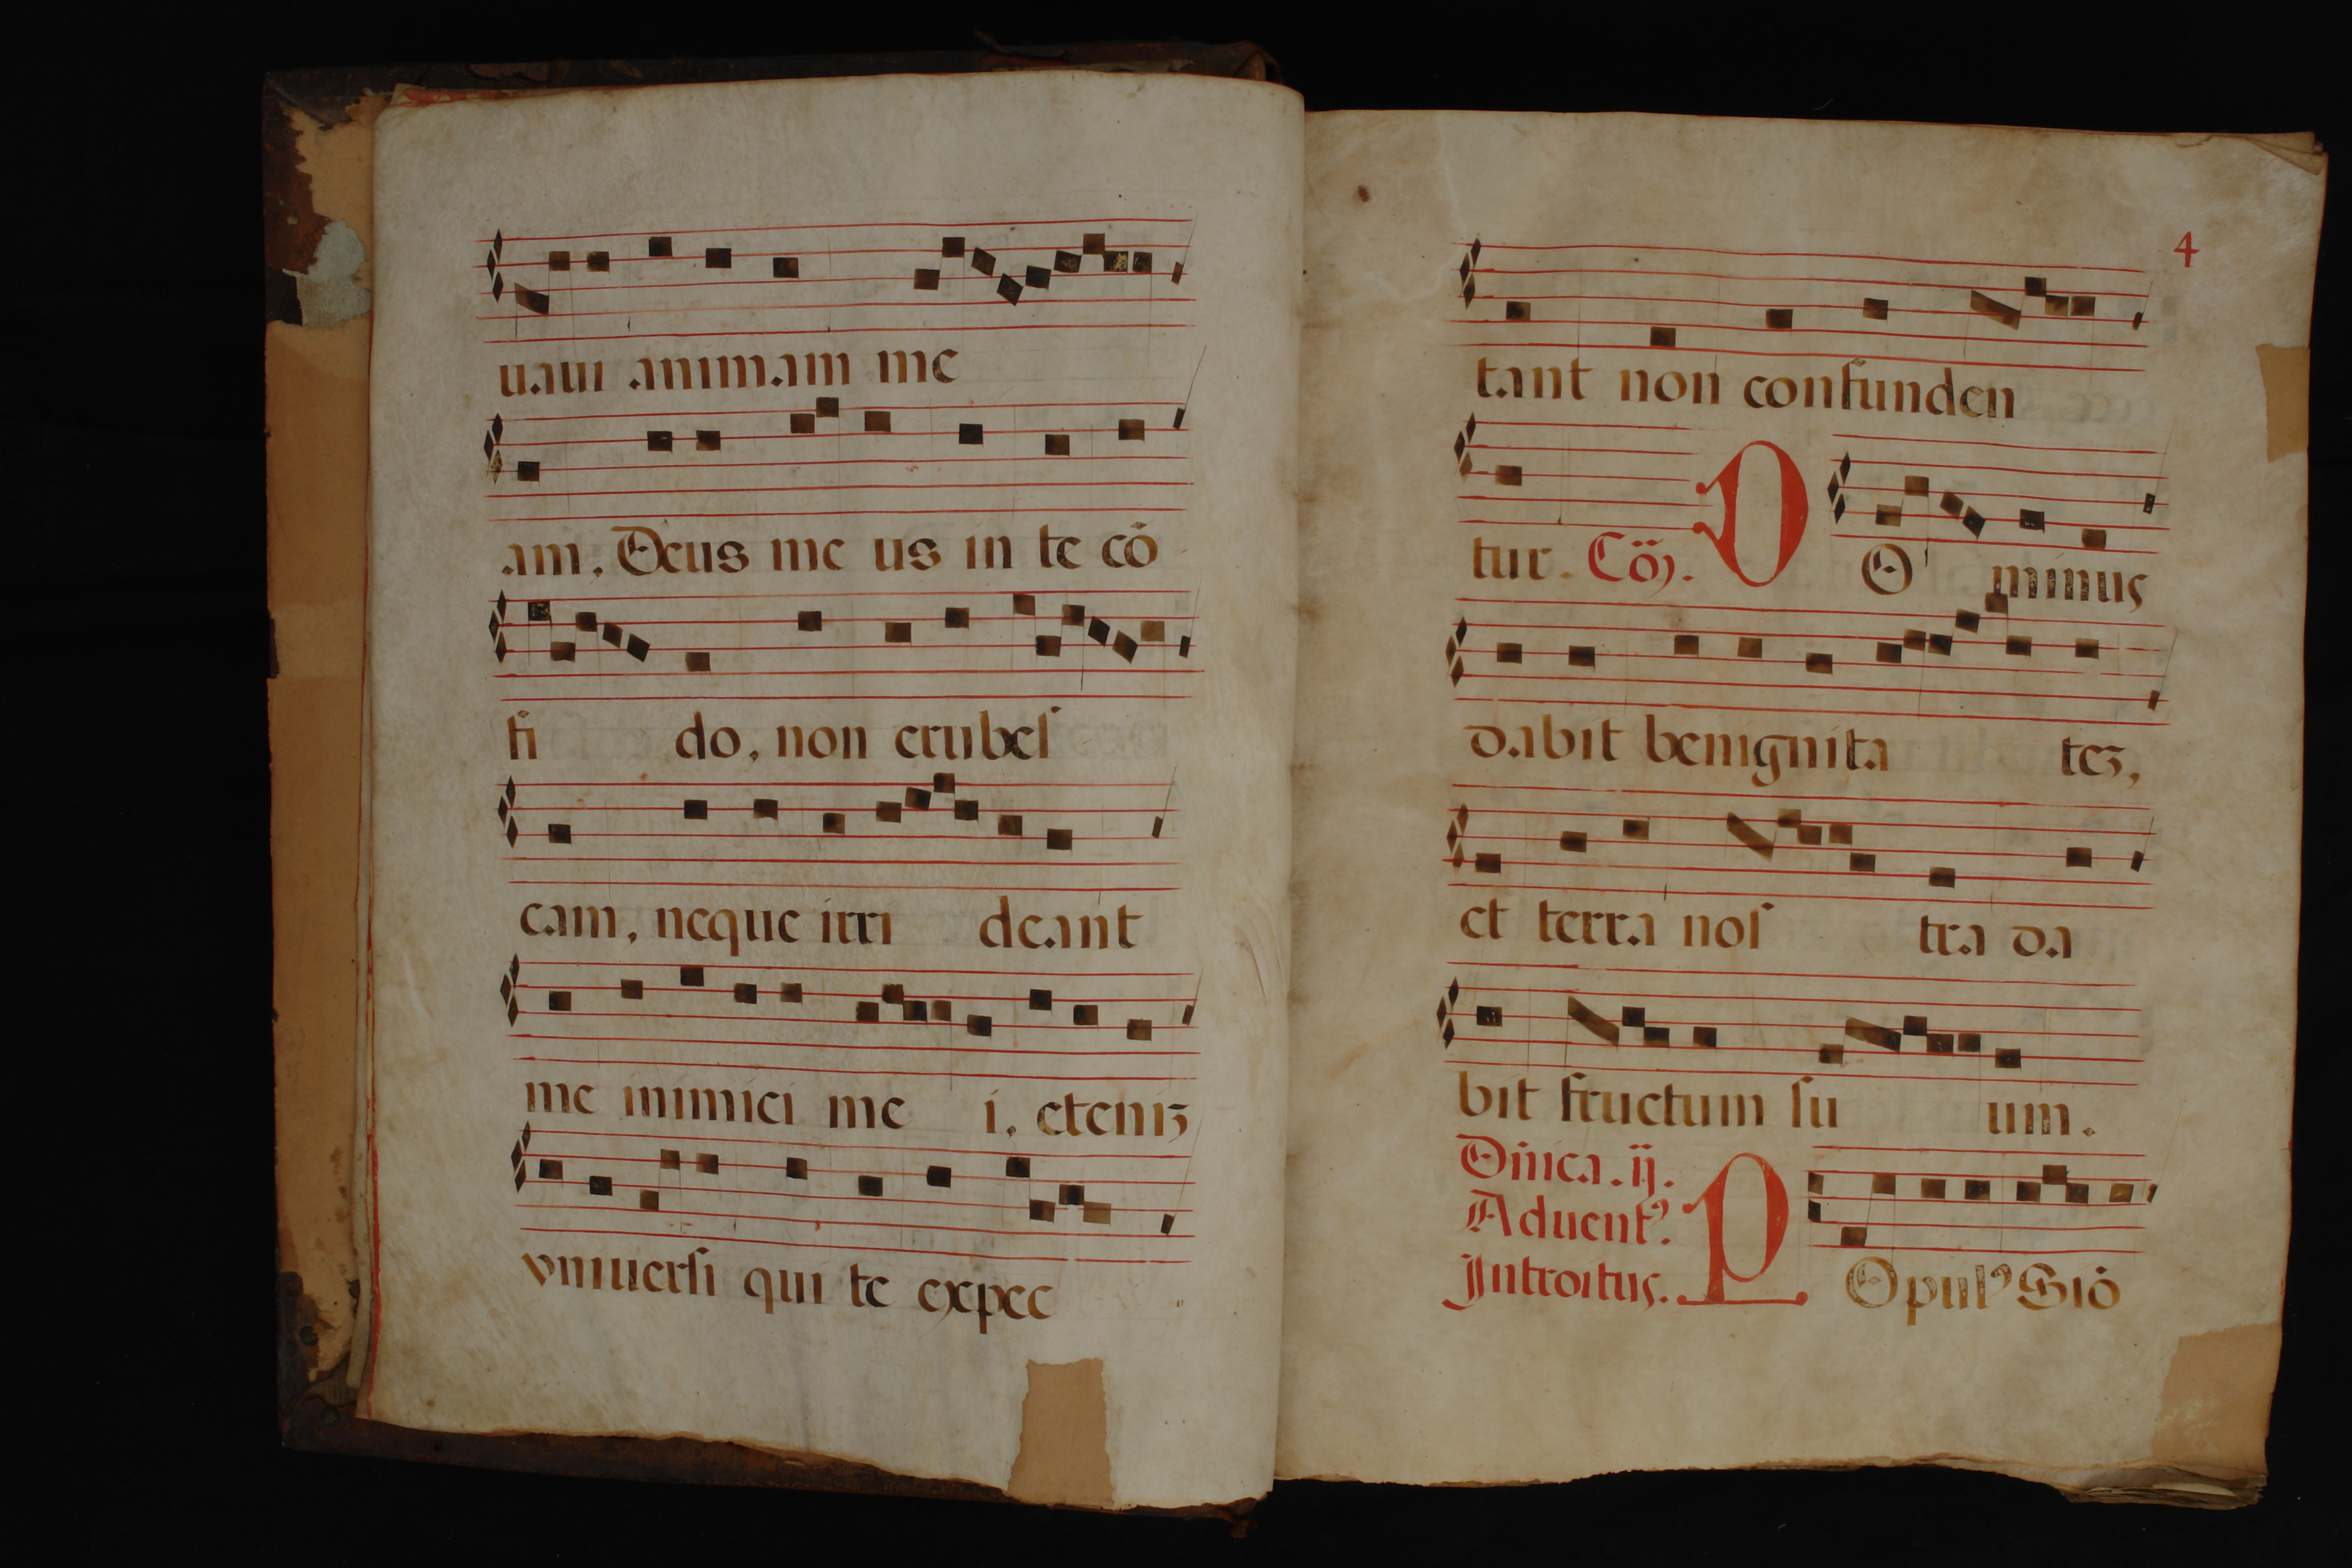 uaui animam me
am. Deus me us in te cõ
fi do, non erubeſ
cam, neque irri deant
me inimici me i, eteniʒ
vniuerſi qui te expec
4
tant non confunden
tur. Cõ. D O minus
dabit benignita teʒ,
et terra noſ tra da
bit fructum ſu um.
Dñica. ij.
Aduentꝰ.
Introitus. P Opulꝰ Siõ